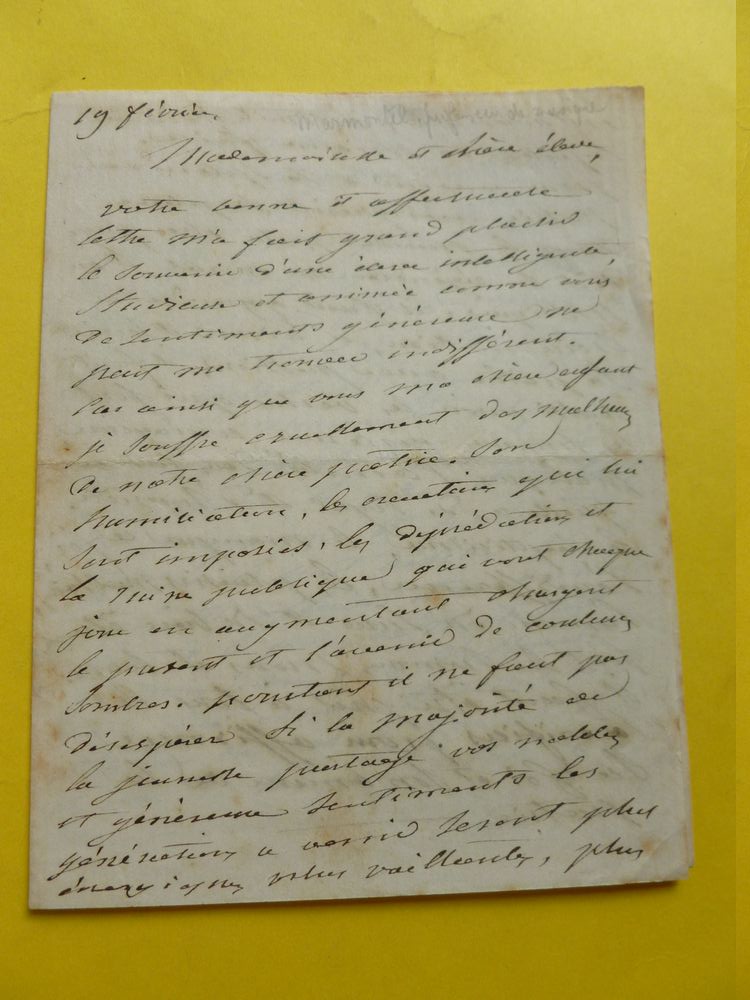 19 février
Mademoiselle et chère élève,
votre bonne et affectueuse
lettre m'a fait grand plaisir
le souvenir d'une élève intelligente,
studieuse et animée comme vous
de sentiments généreux ne
peut me trouver indifférent.
Car ainsi que vous ma chère enfant
je souffre cruellement des malheurs
de notre chère patrie. Son
humiliation, les exactions qui lui
sont imposées, les déprédations et
la ruine publique qui vont chaque
jour en augmentant chargent
le présent et l'avenir de couleurs
sombres. pourtant il ne faut pas
désespérer si la majorité de
la jeunesse partage vos nobles
et généreux sentiments les
générations à venir seront plus
énergiques plus vaillantes, plus